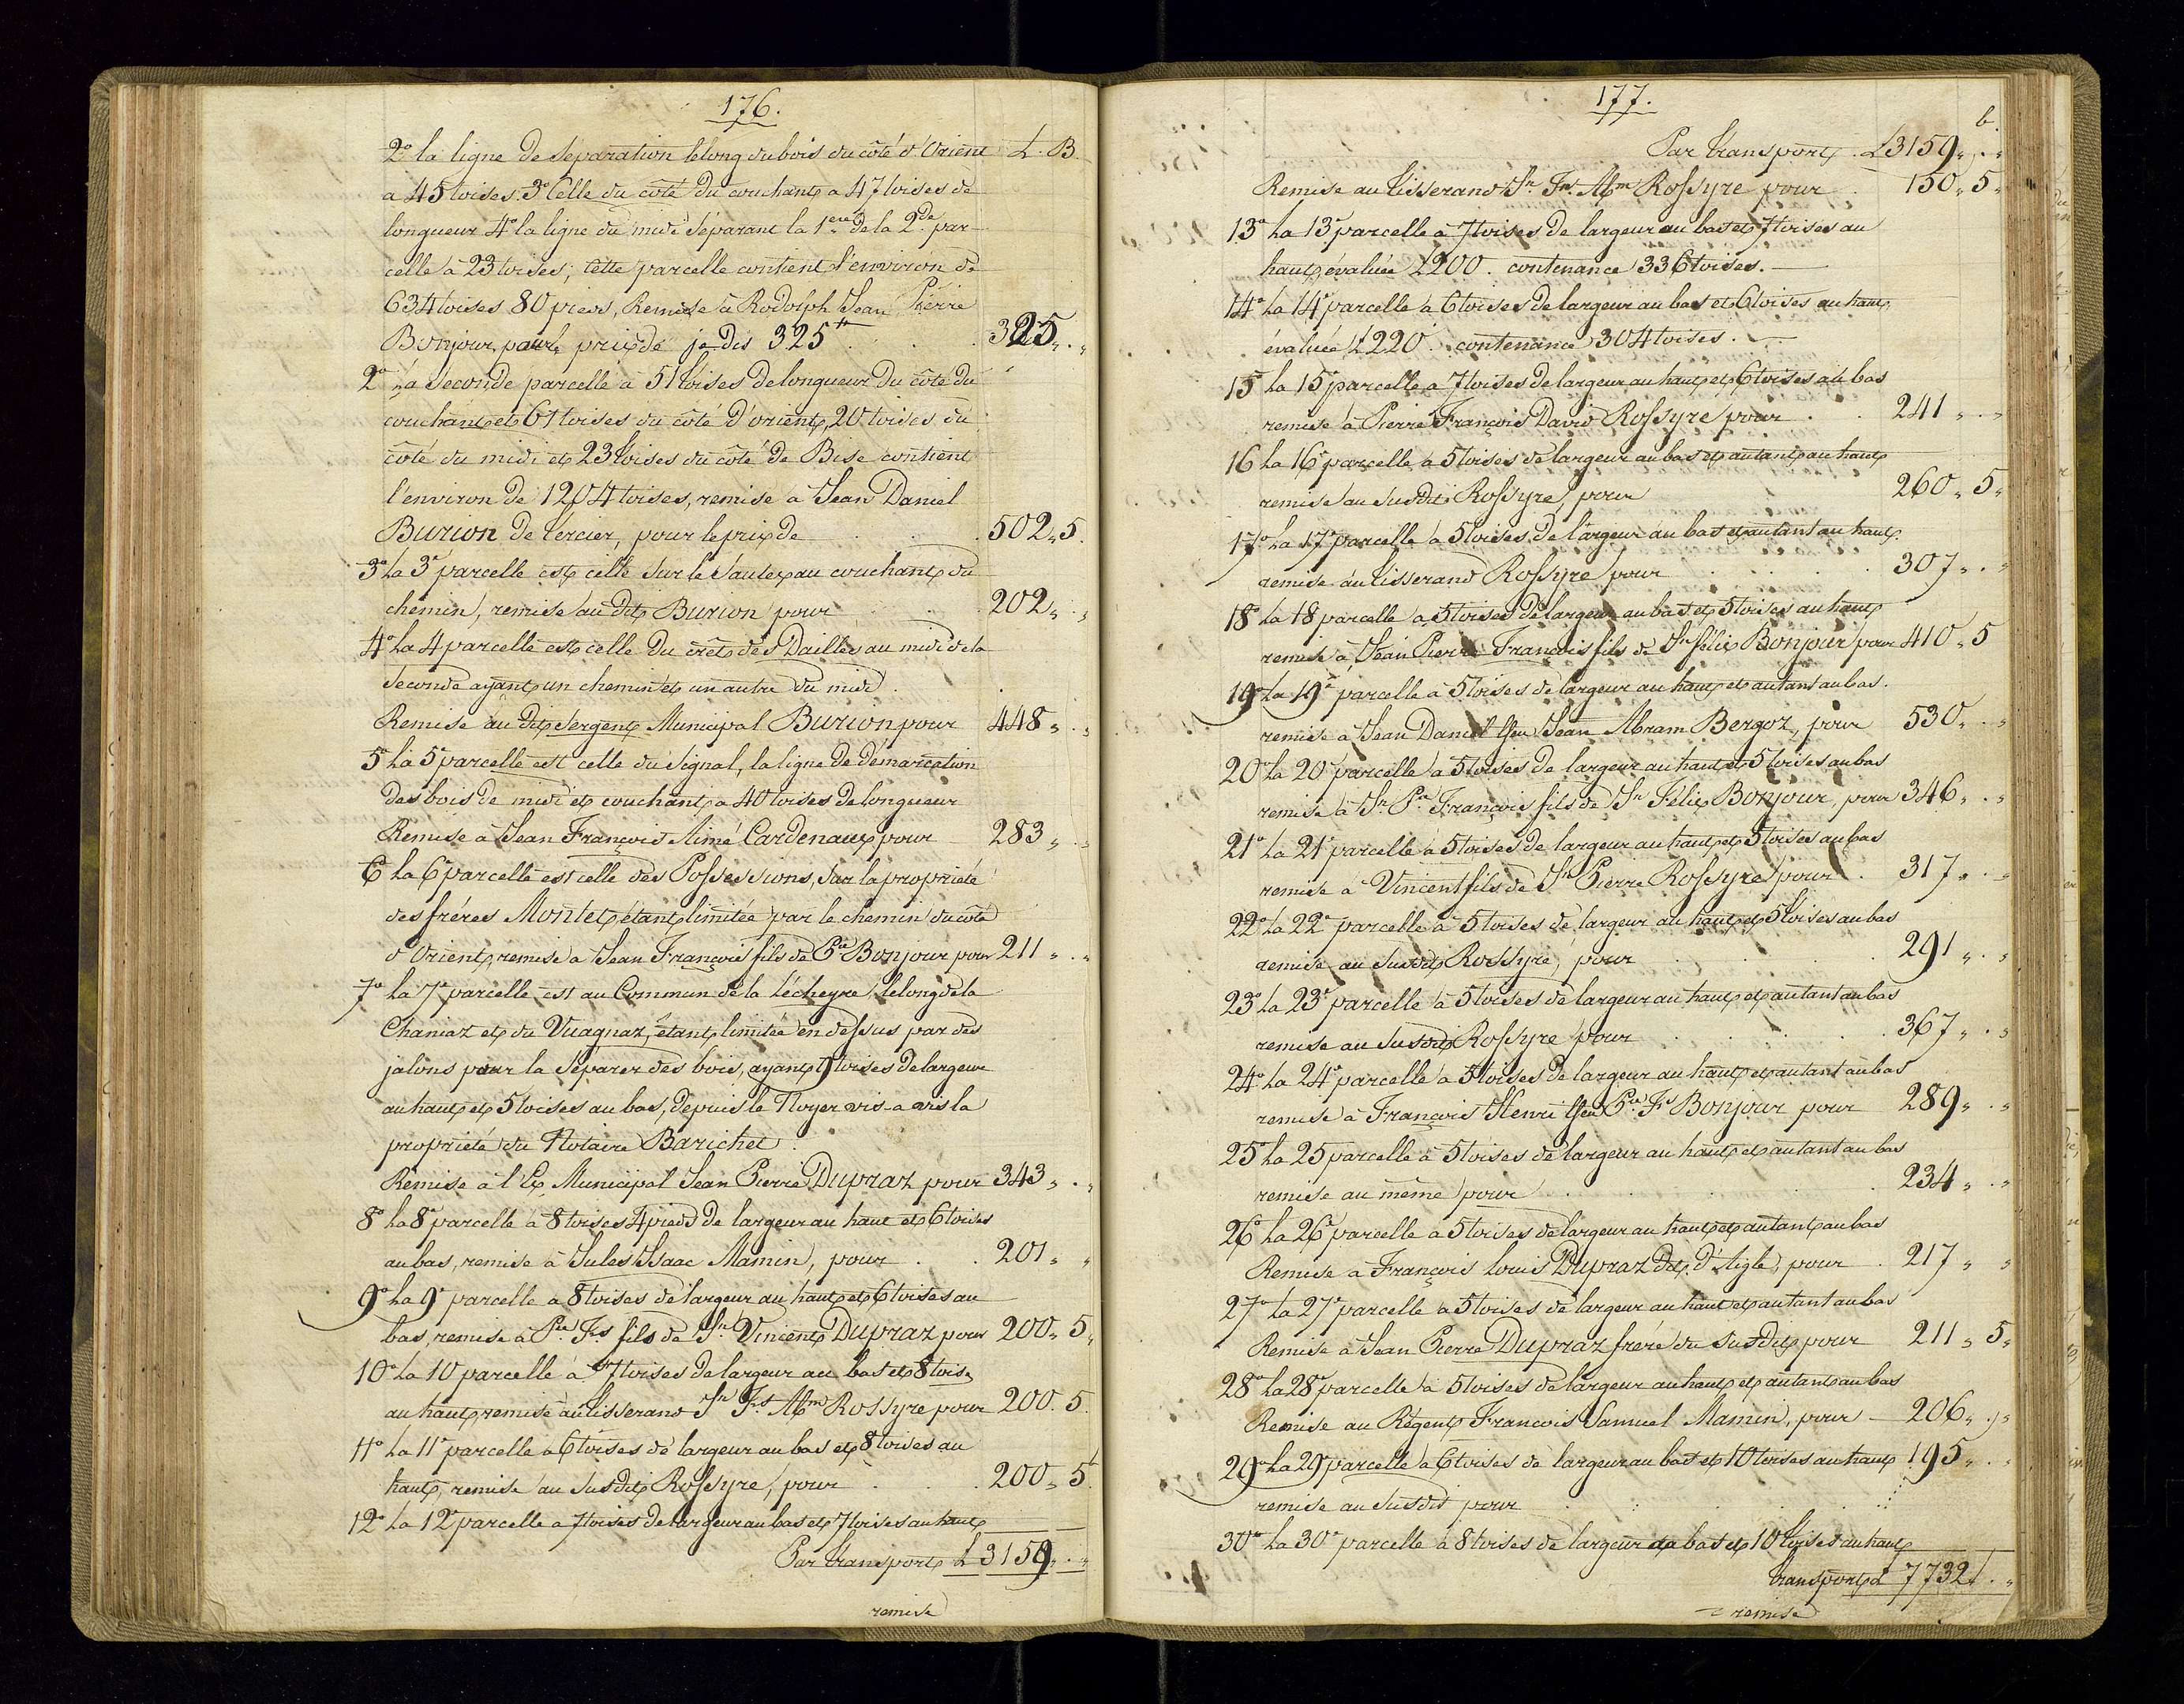 176.
2.° la ligne de séparation le long du bois du côté d'Orient L. B.
a 45 toises. 3.° Celle du côté du couchant a 47 toises de
longueur 4.° la ligne du midi séparant la 1.ere de la 2.de par-
celle a 23 toises; Cette parcelle contient l'environ de
634 toises 80 pieds, Remise à Rodolph Jean Pierre
Bonjour, pour le prix de je dis 325 fr 325 " . "
2.° La seconde parcelle a 51 toises de longueur du côté du
couchant et 61 toises du côté d'orient, 20 toises du
côté du midi et 23 toises du côté de Bise contient
l'environ de 1204 toises, remise à Jean Daniel
Burion de Cercier, pour le prix de . . 502 " 5.
3.° La 3.e parcelle est celle sur le Sautex au couchant du
chemin, remise au dit Burion pour . . 202 " . "
4.° La 4 parcelle est celle du crêt des Dailles au midi de la
seconde ayant un chemin et un autre du midi .
Remise au dit Sergent Municipal Burion pour 448 " . "
5.° La 5.e parcelle est celle du Signal, la ligne de démarcation
des bois de midi et couchant a 40 toises de longueur
Remise à Jean François Aimé Cardenaux pour 283 " . "
6 La 6.e parcelle est celle des Possessions, sur la propriété
des frères Montet étant limitée par le chemin du côté
d'Orient, remise à Jean François fils de P.re Bonjour pour 211 " . "
7.° La 7.e parcelle est au Commun de la Lécheyre le long de la
Chaniaz et du Vuagnaz, étant limitée en dessus par des
jalons pour la séparer des bois, ayant 9 toises de largeur
au haut et 5 toises au bas, depuis le Noyer vis-a vis la
propriété du Notaire Barichet.
Remise à l'Ex Municipal Jean Pierre Dupraz pour 343 " . "
8.° La 8.e parcelle a 8 toises 4 pieds de largeur au haut et 6 toises
au bas, remise à Jules Isaac Mamin, pour . . 201 " "
9.° La 9.e parcelle a 8 toises de largeur au haut et 6 toises au
bas, remise à P.re F.s fils de J.n Vincent Dupraz pour 200 " 5 "
10.° La 10 parcelle a 7 toises de largeur au bas et 8 toises
au haut, remise au tisserand J.n F.s Ab.m Rossyre pour 200. 5.
11.° La 11.e parcelle a 6 toises de largeur au bas et 8 toises au
haut, remise au susdit Rossyre, pour . . . 200 " 5
12.° La 12.e parcelle a 7 toises de largeur au bas et 7 toises au haut
Par transport L 3159 " . "
remise
177.
b.
Par transport . L 3159 " . "
Remise au tisserand J.n F.s Ab.m Rossyre pour . 150 " 5 "
13.° La 13.e parcelle a 7 toises de largeur au bas et 7 toises au
haut, évaluée L 200. contenance 336 toises. —
14.° La 14.e parcelle a 6 toises de largeur au bas et 6 toises au haut,
évaluée L 220. contenance 304 toises. —
15.° La 15.e parcelle a 7 toises de largeur au haut et 6 toises au bas
remise à Pierre François David Rossyre pour . . 241 " . "
16 La 16.e parcelle a 5 toises de largeur au bas et autant au haut
remise au susdit Rossyre, pour 260 " 5 "
17.° La 17.e parcelle a 5 toises de largeur au bas et autant au haut
remise au tisserand Rossyre pour . . . . 307 " . "
18.° La 18 parcelle a 5 toises de largeur au bas et 5 toises au haut
remise à Jean Pierre François fils de J.n Félix Bonjour pour 410 " 5
19.° La 19.e parcelle a 5 toises de largeur au haut et autant au bas.
remise à Jean Daniel feu Jean Abram Bergoz, pour 530 " . "
20.° La 20.e parcelle a 5 toises de largeur au haut et 5 toises au bas
remise à J.n P.re François fils de J.n Félix Bonjour, pour 346 " . "
21.° La 21.e parcelle a 5 toises de largeur au haut et 5 toises au bas
remise à Vincent fils de J.n Pierre Rossyre pour . 317 " . "
22.° La 22.e parcelle a 5 toises de largeur au haut et 5 toises au bas
remise au susdit Rossyre, pour . . . . 291 " . "
23.° La 23.e parcelle a 5 toises de largeur au haut et autant au bas
remise au susdit Rossyre pour . . . . 367 " . "
24.° La 24.e parcelle a 5 toises de largeur au haut et autant au bas
remise à François Henri feu P.re F.s Bonjour pour 289 " . "
25.° La 25 parcelle a 5 toises de largeur au haut et autant au bas
remise au même pour . . . . 234 " . "
26.° La 26.e parcelle a 5 toises de largeur au haut et autant au bas
Remise à François Louis Dupraz dit d'Aigle, pour . 217 " "
27.° La 27.e parcelle a 5 toises de largeur au haut et autant au bas
Remise à Jean Pierre Dupraz frère du susdit pour 211 " 5 "
28.° La 28.e parcelle a 5 toises de largeur au haut et autant au bas
Remise au Régent François Samuel Mamin, pour — 206 " . "
29.° La 29.e parcelle a 6 toises de largeur au bas et 10 toises au haut 195 " . "
remise au susdit pour . . . .
30.° La 30.e parcelle a 8 toises de largeur au bas et 10 toises au haut
transport L 7732 . "
remise